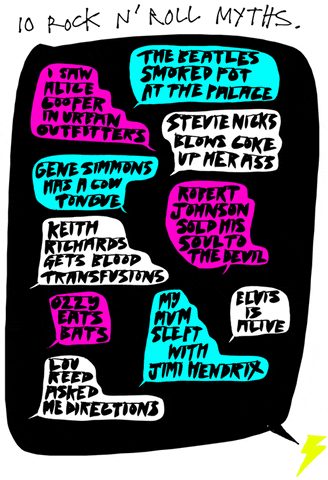 10 ROCK N' ROLL MYTHS.
I SAW
ALICE
COOPER
IN URBAN
OUTFITTERS
THE BEATLES
SMOKED POT
AT THE PALACE
STEVIE NICKS
BLOWS COKE
UP HER ASS
GENE SIMMONS
HAS A COW
TONGUE
ROBERT
JOHNSON
SOLD HIS
SOUL TO
THE DEVIL
KEITH
RICHARDS
GETS BLOOD
TRANSFUSIONS
OZZY
EATS
BATS
MY
MUM
SLEPT
WITH
JIMI HENDRIX
ELVIS
IS
ALIVE
LOU
REED
ASKED
ME DIRECTIONS